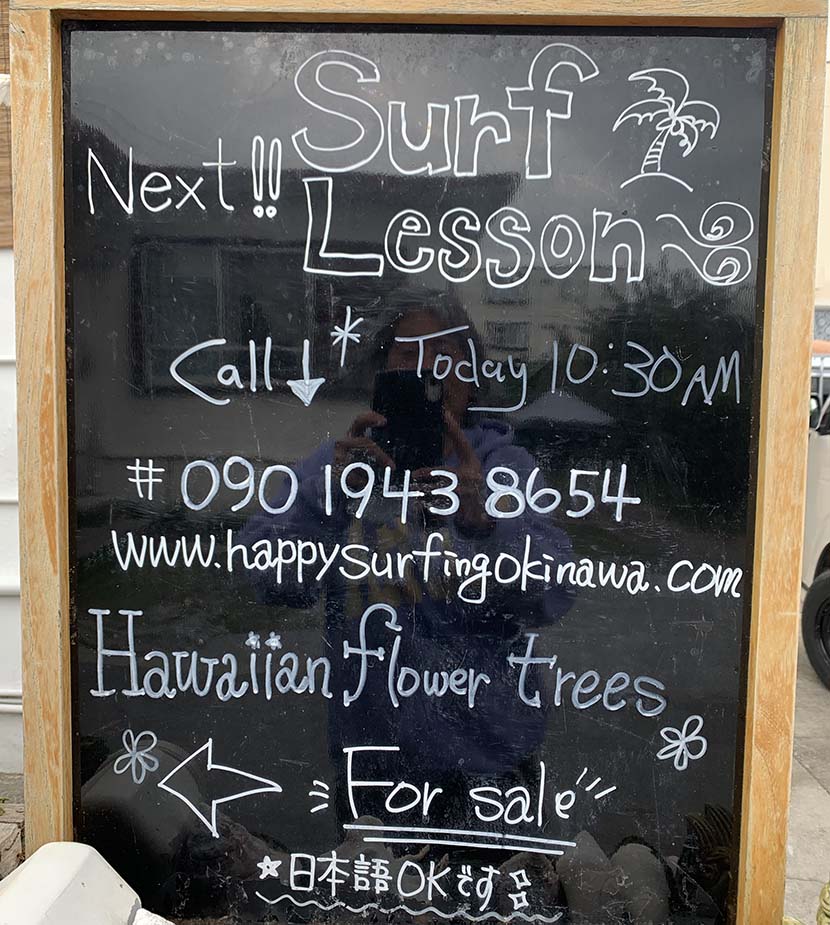 Surf
Next!! Lesson
Call↓ * Today 10:30 AM
# 090 1943 8654
www.happysurfingokinawa.com
Hawaiian flower trees
For sale
☆日本語OKです